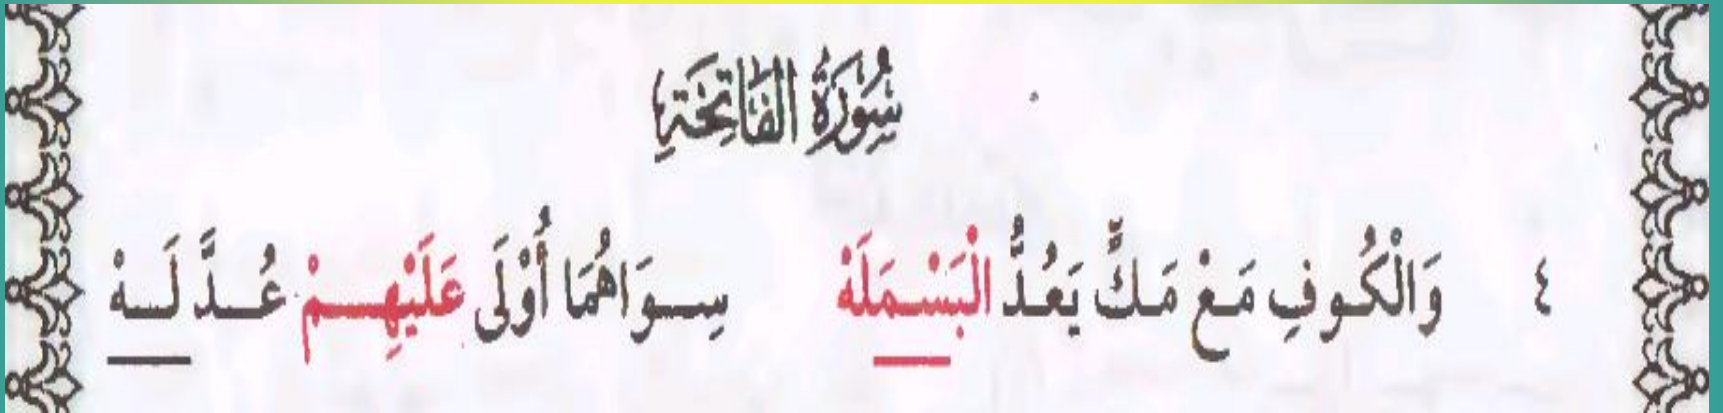 سُورَةُ الْفَاتِحَةِ
٤ وَالْكُوفِ مَعْ مَكٍّ يَعُدُّ الْبَسْمَلَهْ سِوَاهُمَا أُوْلَى عَلَيْهِمْ عُدَّ لَهْ